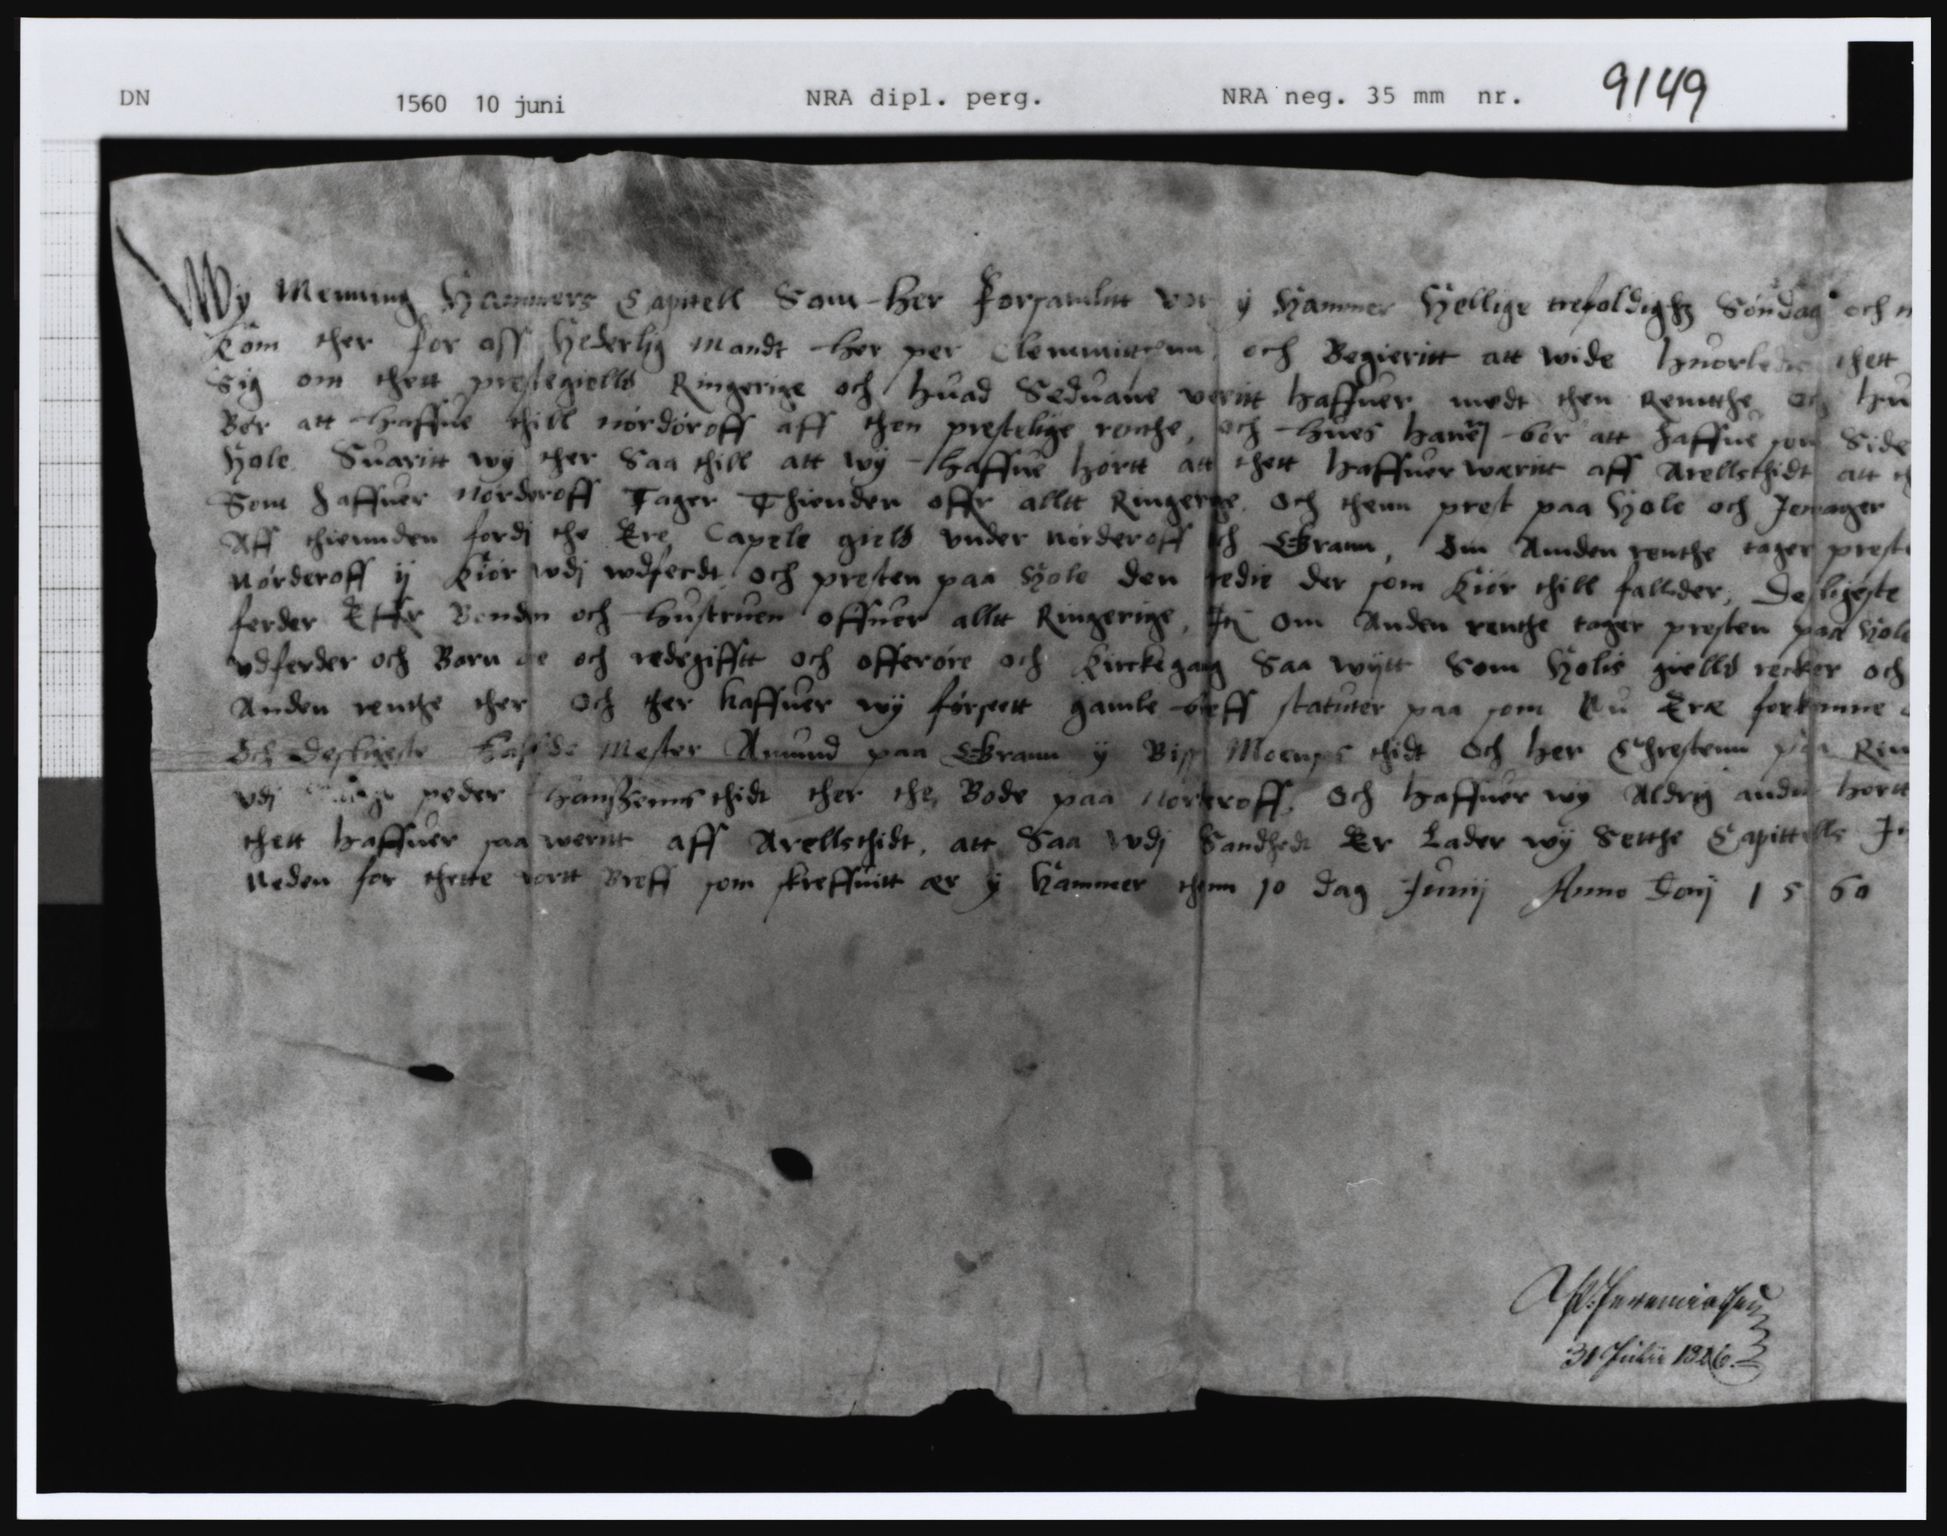 DN 1560 10 juni NRA dipl. perg. NRA neg. 35 mm nr. 9149
Wy Menning Hammers Capitell Som her forsamlitt vor ÿ Hammer Hellige trefoldighz Søndag och
Kom ther for oss Hederlig Mandt her per och Begieritt att wide huorledis thett
Sig om thett prestegielld Ringerige och huad Seduane veritt haffuer medt then Renthe och hu
Bør att haffue thill nordøroff aff then prestelige renthe, och hues bør att haffue som Side
Hole Suaritt wÿ ther Saa thill att wÿ haffue hørtt att thett haffuer wæritt aff Arellsthidt att
Som haffuer Norderoff Tager Thienden offr alltt Ringerige och thenn prest paa Hole och
Aff thiennden fordj the Ere Capele gield vnder norderoff och Grann, Om Anden renthe tager prest
Nørderoff ij Kiør wdj wdferdt och presten paa Hole den redie der som Kiør thill fallder, Desligeste
ferder Effr Bonden och hustruen offuer alltt Ringerige, Itz om Anden renthe tager presten paa Hole
vdferder och Barn och redegifftt och offerøre och Kirckegang Saa wÿtt Som Holis gielld recker och
Anden renthe ther och ther haffuer wÿ førsett gamle breff statuter paa som Nu Ere forkomne
Och Desligeste haffde Mester Amund paa Grann ÿ Bisp Moenses thidt och her Chrestenn paa Rin
vdj peder Hanssenns thidt ther the Bode paa Norderoff. Och haffuer wÿ Aldrig andit hørtt
thett haffuer saa weritt aff Arellsthidt, att Saa wdj Sandhedt Er Lader wÿ Setthe Capittells
Neden for thette vortt Breff som skreffuitt ær ÿ Hammer thenn 10 Dag Junij Anno Donj 1560
31 Julii